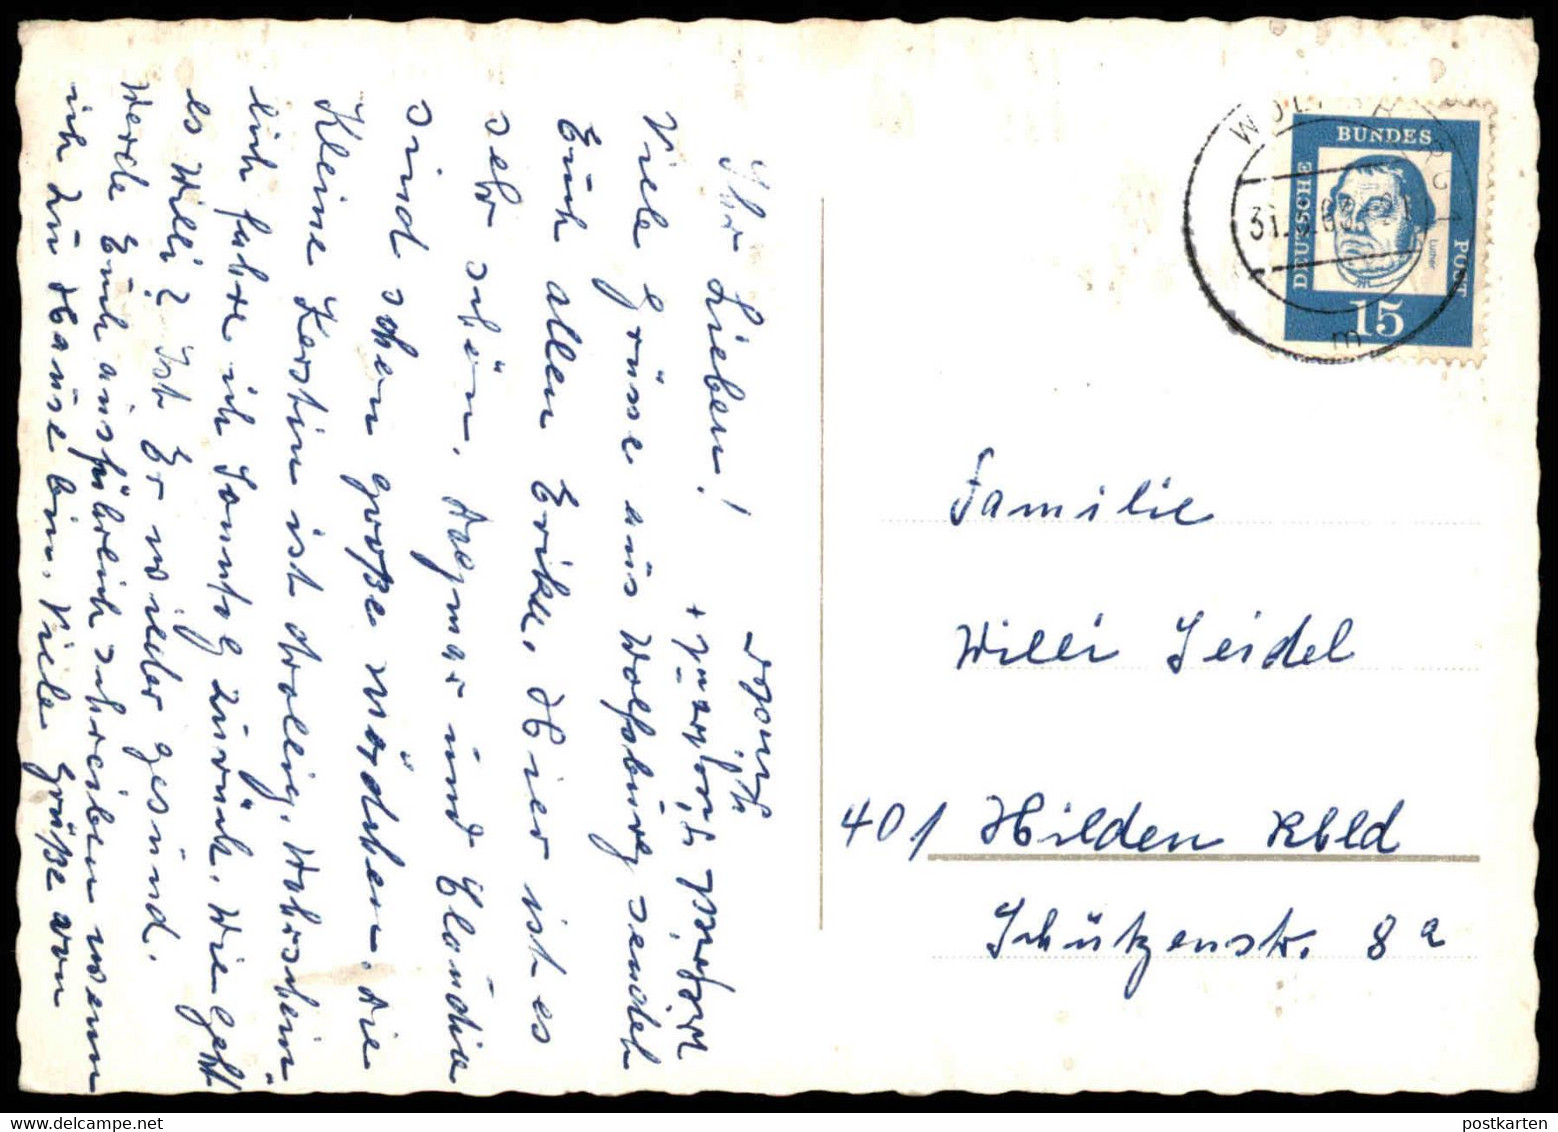 Ihr Lieben!
Viele Grüße aus Wolfsburg sendet
Euch allen Erika. Hier ist es
sehr schön. Dagmar und Claudia
sind schon große Mädchen. Die
Kleine Kerstin ist drollig. Wahrschein-
lich fahre ich Sonntag zurück. Wie geht
es Willi? Ist Er wieder gesund.
Werde Euch ausführlich schreiben wenn
ich zu Hause bin. Viele Grüße von
WOLFSBURG 1
31. 63 -21
m
DEUTSCHE
BUNDES
POST
Luther
15
Familie
Willi Seidel
401 Hilden Rhld
Schützenstr. 8a
postkarten